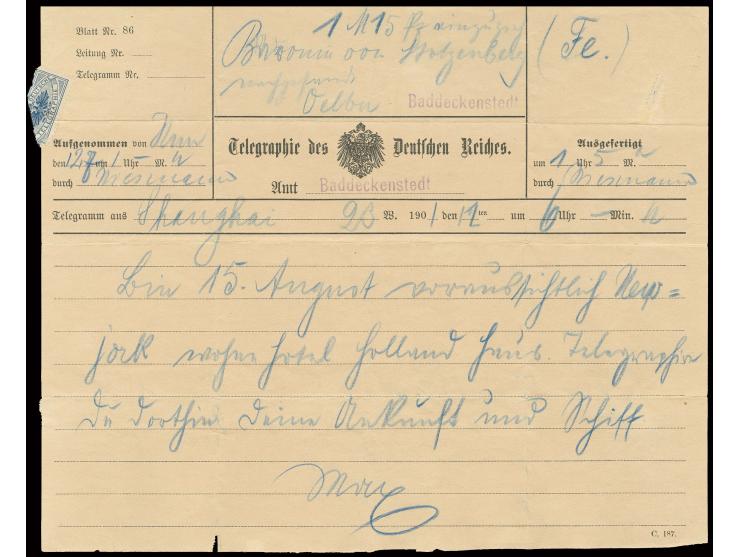 Blatt Nr. 86
Leitung Nr.
Telegramm Nr.
1 M 15 Pf einzuziehen
Baronin von
nachgesandt
Oelber Baddeckenstedt
(Fe.)
Aufgenommen von
den 12/7 um 1 Uhr — M.
durch
Telegraphie des Deutschen Reiches.
Amt Baddeckenstedt
Ausgefertigt
um 1 Uhr 5 M.
durch
Telegramm aus Shanghai W. 1901 den 12ten um 6 Uhr — Min.
Bin 15. August voraussichtlich New=
jork wohne Hotel Holland Haus. Telegraphire
Du dorthin Deine Ankunft und Schiff
Max
C. 187.